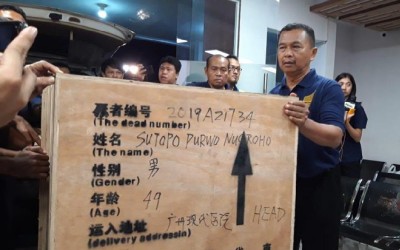 死者编号 2019A21734
(The dead number)
姓名 SUTOPO PURWO NUGROHO
(The name)
性别 男
(Gender)
年龄 49
(Age)
运入地址 广州现代医院 HEAD
(delivery addressin)